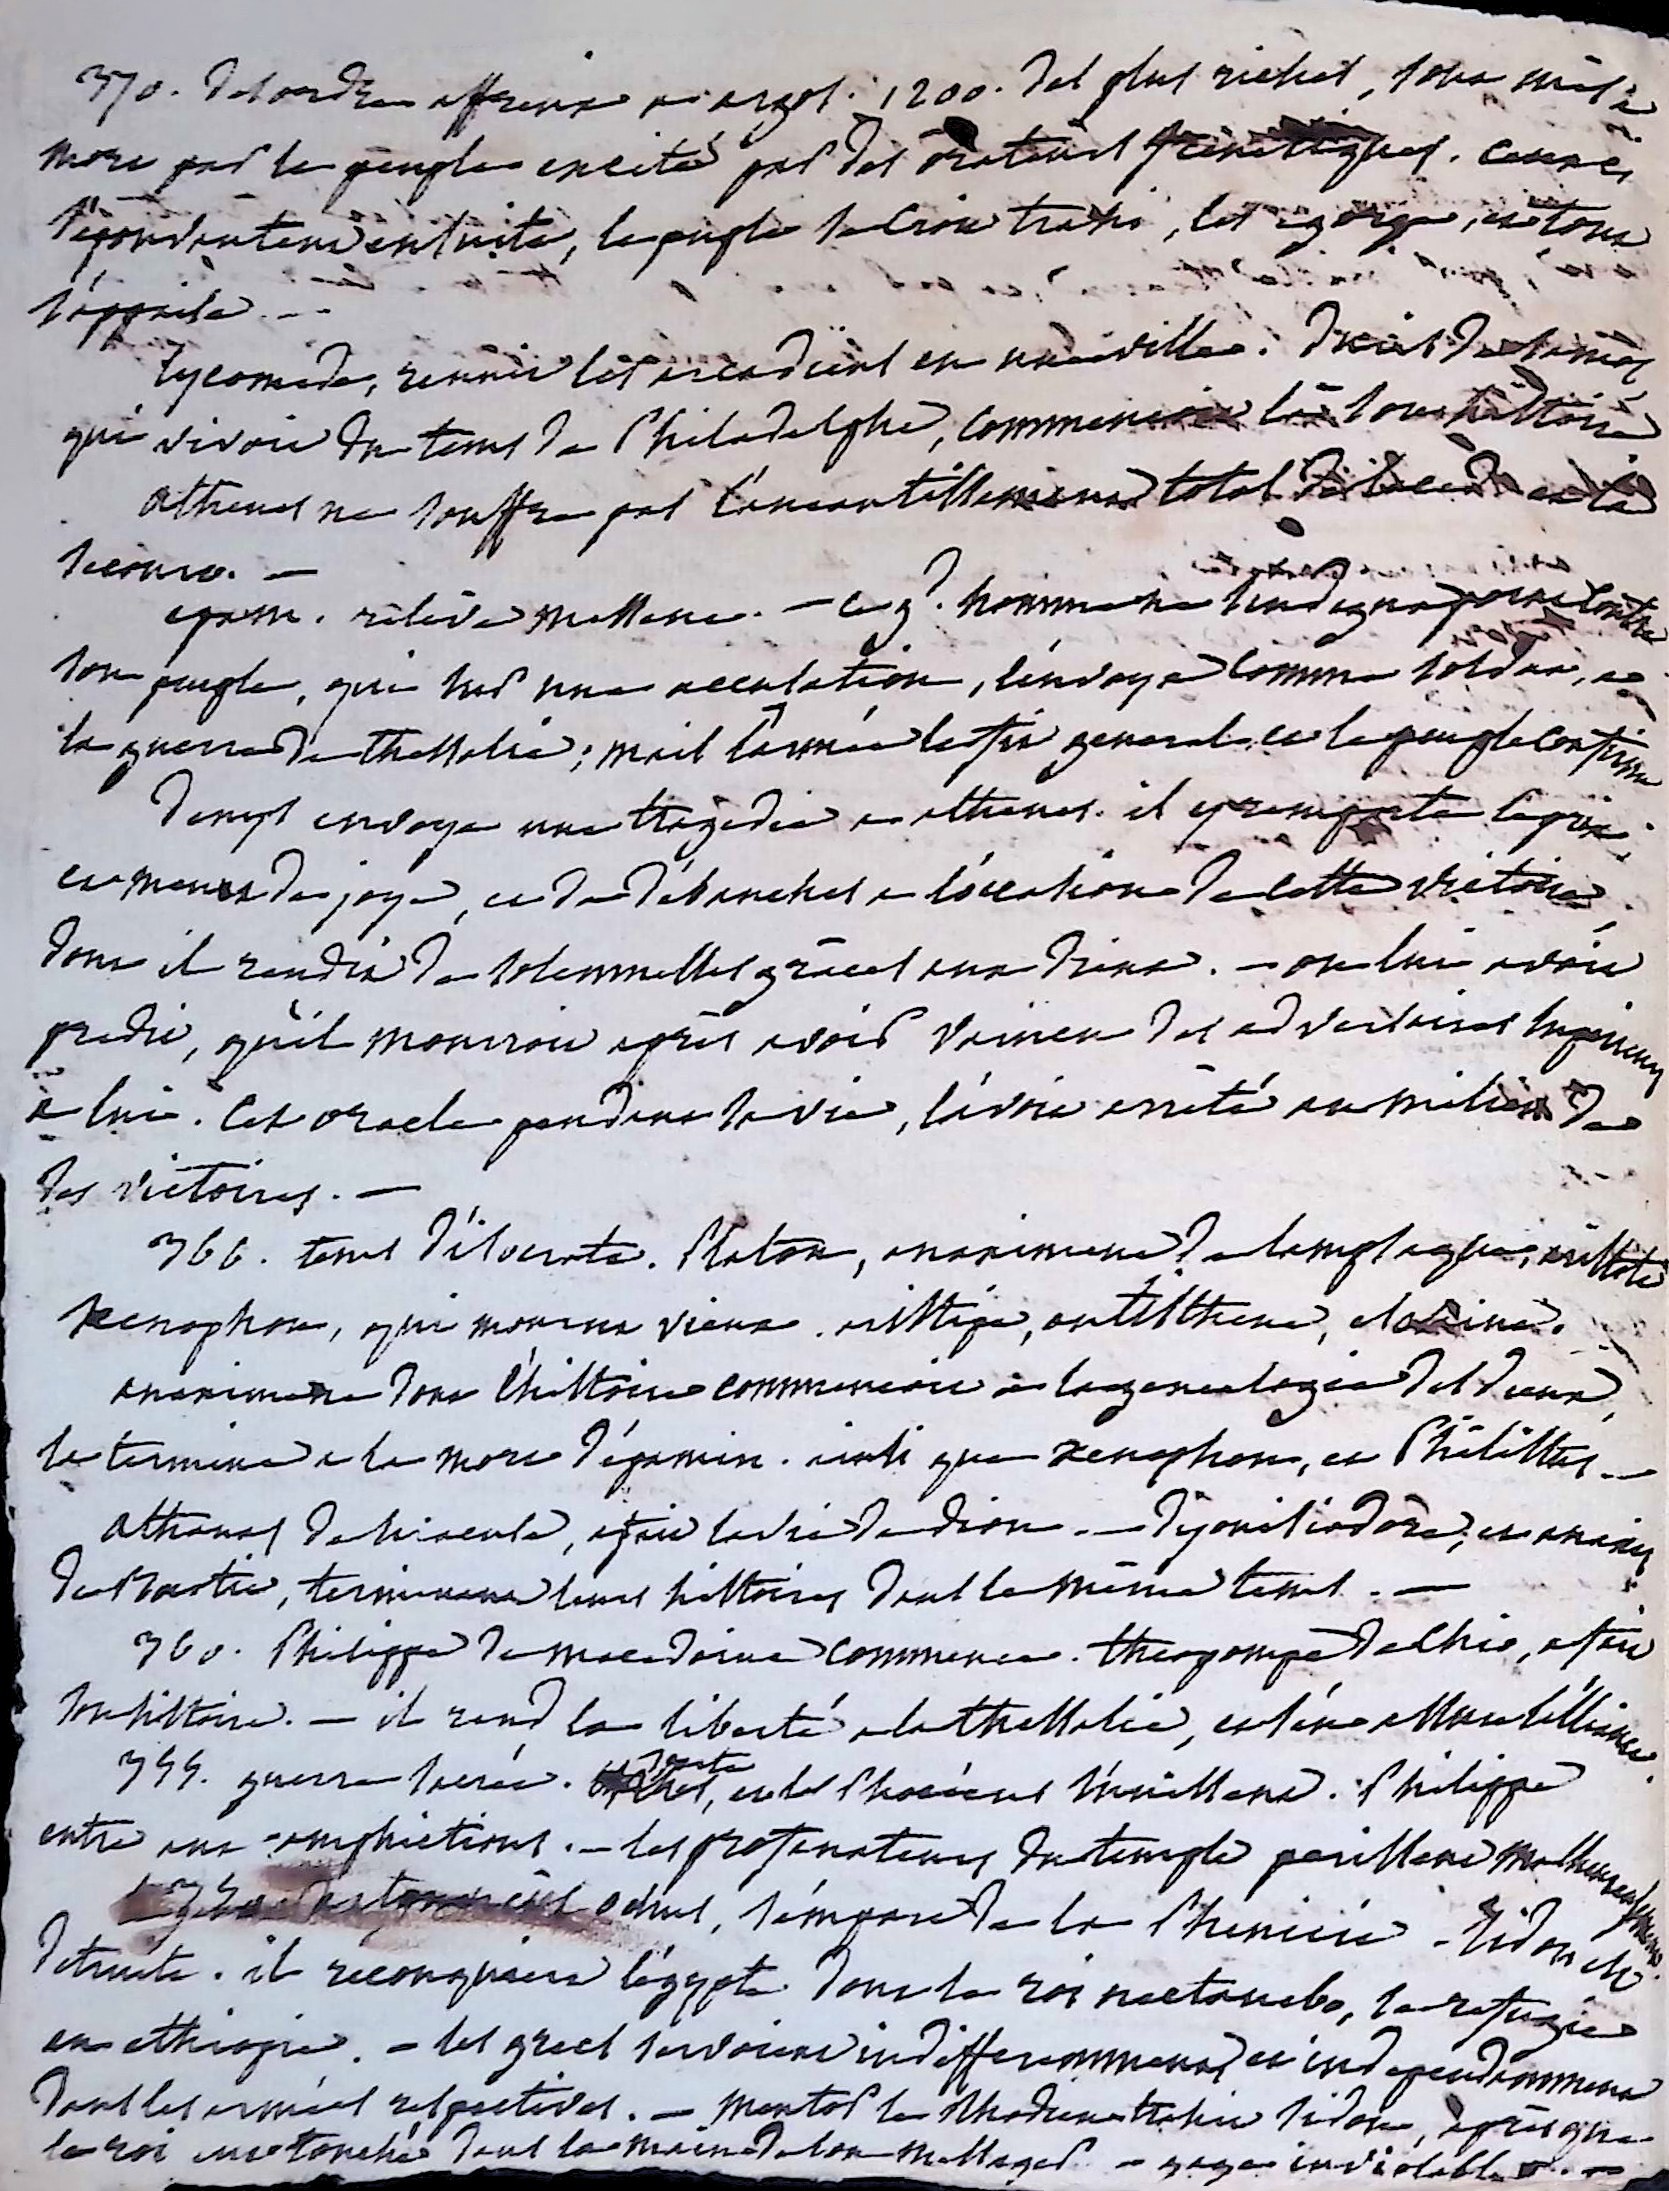 370. desordres affreux a argos. 1200. des plus riches, sont mis à
mort par le peuple excité par des orateurs frénétiques. ceux ci
s'épouvantent ensuite, le peuple se croit trahi, les egorge, et tout
s'appaise. --
Lycomede, reunit les arcadiens en une ville. duris de samos,
qui vivoit du tems de Philadelphe, commencoit là son histoire
athenes ne souffre pas l'aneantissement total de laced. et la
secourt. —
epam. relève messene. — ce gd. homme ne s'indigna point contre
son peuple, qui sur une accusation, l'envoya comme soldat, a
la guerre de thessalie; mais l'armée le fit general et le peuple confirma
denys envoye une tragedie a athenes. il y remporte le prix,
et meurt de joye, et de débauches a l'occasion de cette victoire,
dont il rendit de solemnelles grâces aux dieux. — on lui avoit
predit, qu'il mourroit après avoir vaincu des adversaires superieurs
a lui. cet oracle pendant sa vie, l'avoit arrêté au milieu de
des victoires. —
366. tems d'isocrate. Platon, anaximene de lampsaque, aristote
xenophon, qui mourut vieux. aristipe, antisthene, eschine.
anaximene dont l'histoire commencoit a la genealogie des dieux,
la termine a la mort d'epamin. ainsi que xenophon, et Philistus —
athanas de siracuse, a fait la vie de dion. — dyonisiodore, et anaxis
de Beotie, terminent leurs histoires dans le même tems. —
360. Philippe de macedoine commence. theopompe de Chio, a fait
son histoire. — il rend la liberté a la thessalie, et s'en assure l'alliance.
355. guerre sacrée. sparte, et les Phocéens s'unissent. Philippe
entre aux amphictions. — les profanateurs du temple perissent malheureusement.
ochus, s'empare de la Phenicie — Sidon est
detruite. il reconquiert l'egypte dont le roi nectanebo, se refugie
en ethiopie. — les grecs servoient indifferemment et independamment
dans les armées respectives. — mentor le Rhodien trahit sidon, après que
le roi eut touché dans la main de son messager — gage inviolable. —